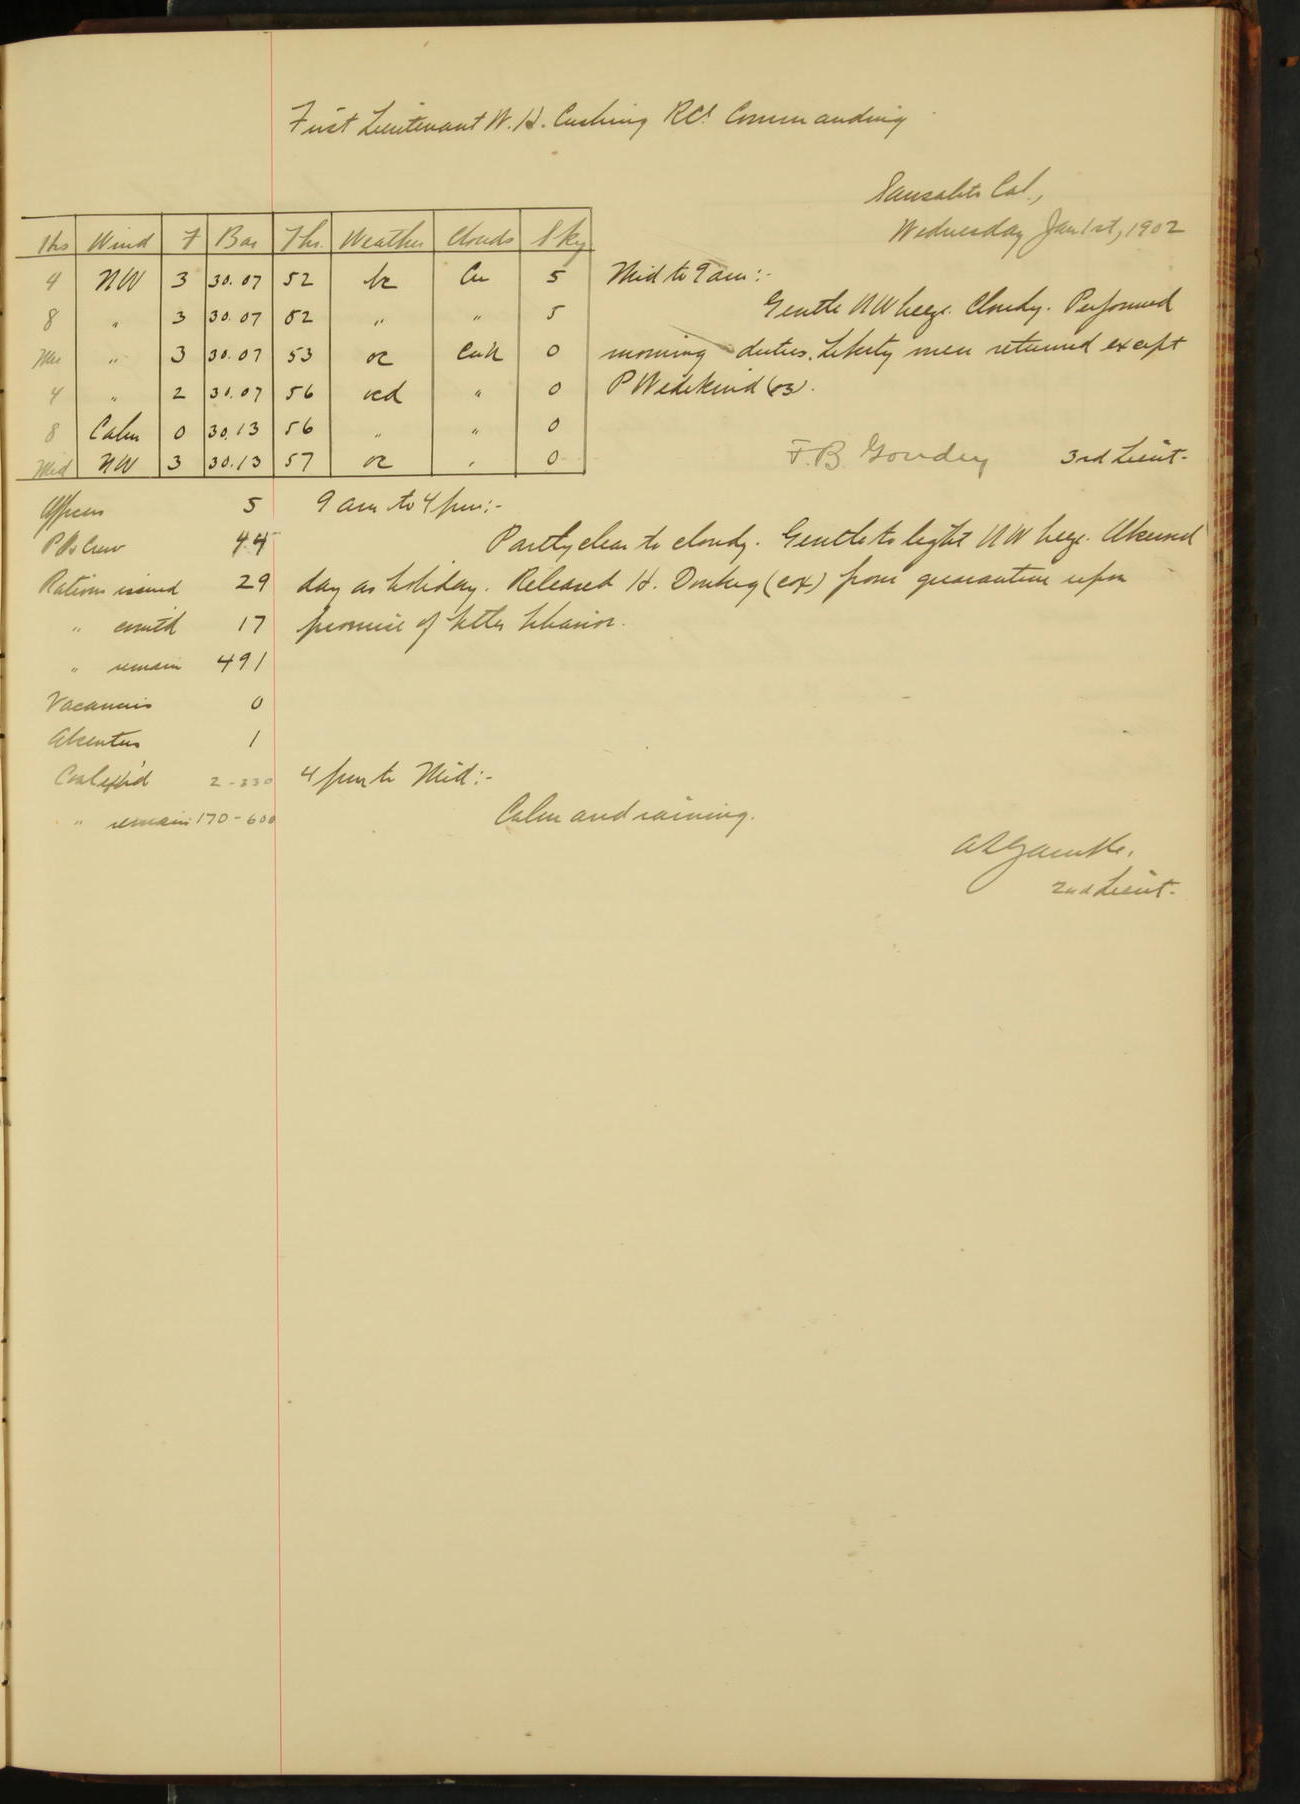 First Lieutenant W. H. Cushing RCS Commanding
Sausalito Cal.,
Wednesday Jan 1st, 1902
Hrs Wind F Bar Thr. Weather Clouds Sky
4 NW 3 30.07 52 bc Cu 5
8 " 3 30.07 52 " " 5
Mer " 3 30.07 53 oc CuN 0
4 " 2 30.07 56 ocd " 0
8 Calm 0 30.13 56 " " 0
Mid NW 3 30.13 57 oc " 0
Mid to 9 am:-
Gentle NW breeze. Cloudy. Performed
morning duties. Liberty men returned except
P Wedekind
F. B. Goudey 3rd Lieut.
Officers 5
P Os Crew 44
Rations issued 29
" comtd 17
" remain 491
Vacancies 0
Absentees 1
Coal exp'd 2-330
" remain 170-600
9 am to 4 pm:-
Partly clear to cloudy. Gentle to light NW breeze. Observed
day as holiday. Released H. (cox) from quarantine upon
promise of better behavior.
4 pm to Mid:-
Calm and raining.
A L Gamble.
2nd Lieut.